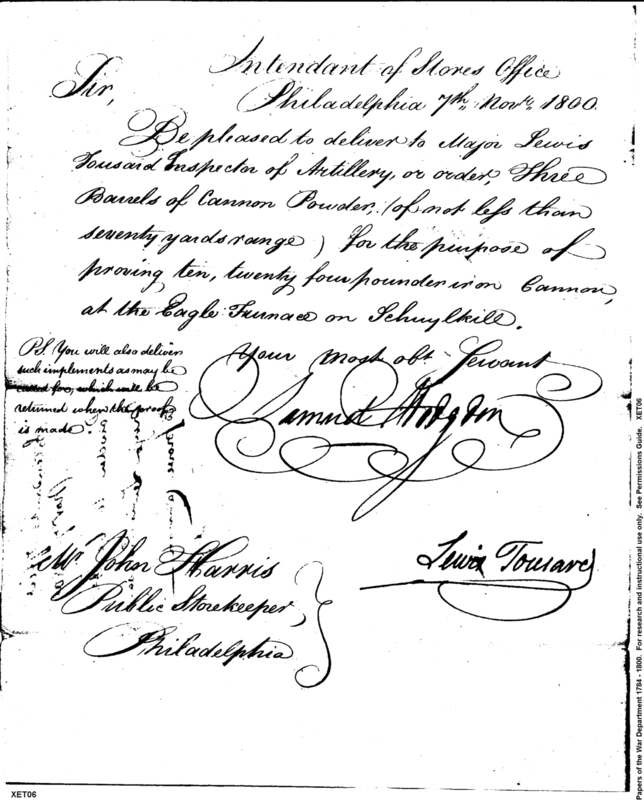 Intendant of Stores Office
Philadelphia 7th Novr. 1800.
Sir,
Be pleased to deliver to Major Lewis
Tousard Inspector of Artillery, or order, Three
Barrels of Cannon Powder, (of not less than
seventy yards range) for the purpose of
proving ten, twenty four pounder iron Cannon,
at the Eagle Furnace on Schuylkill.
Your most obt Servant
Samuel Hodgdon
PS. You will also deliver
such implements as may be
called for, which will be
returned when the proof
is made.
Lewis Tousard
Mr John Harris
Public Storekeeper,
Philadelphia
XET06
Papers of the War Department 1784 - 1800. For research and instructional use only. See Permissions Guide. XET06